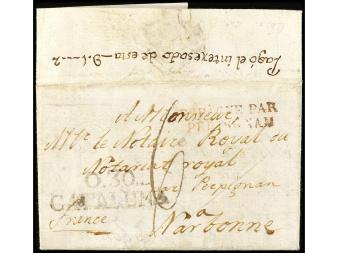 Pagó el interesado de esta 9.1...2
A Monsieur
ESPAGNE PAR
PERPIGNAN
Mr. le Notaire Royal ou
Notariat royal
par Perpignan
O.30.
CATALUÑA
France
Narbonne